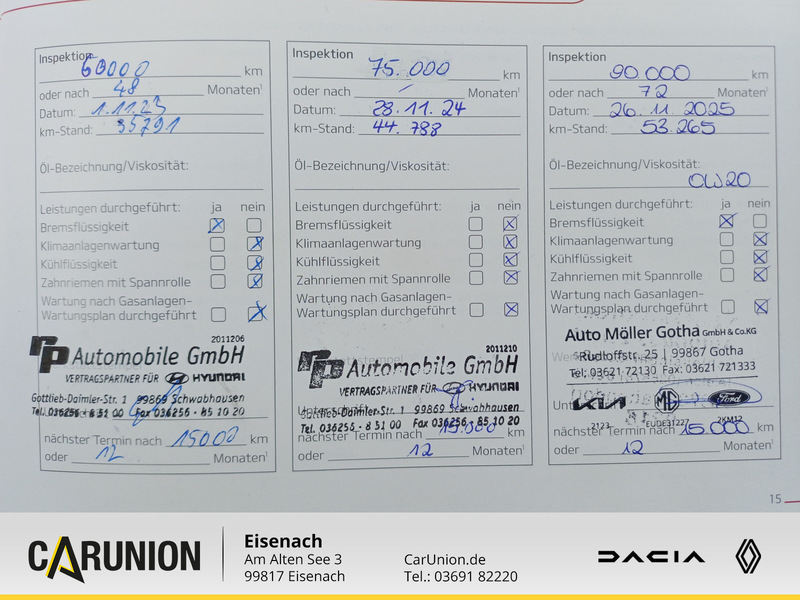 Inspektion
60000 km
oder nach 48 Monaten¹
Datum: 1.11.23
km-Stand: 35791
Öl-Bezeichnung/Viskosität:
Leistungen durchgeführt: ja nein
Bremsflüssigkeit
Klimaanlagenwartung
Kühlflüssigkeit
Zahnriemen mit Spannrolle
Wartung nach Gasanlagen-
Wartungsplan durchgeführt
2011206
rp Automobile GmbH
VERTRAGSPARTNER FÜR HYUNDAI
Gottlieb-Daimler-Str. 1 99869 Schwabhausen
Tel. 036256 - 8 51 00 Fax 036256 - 85 10 20
nächster Termin nach 15000 km
oder 12 Monaten¹
Inspektion
75.000 km
oder nach - Monaten¹
Datum: 28.11.24
km-Stand: 44.788
Öl-Bezeichnung/Viskosität:
Leistungen durchgeführt: ja nein
Bremsflüssigkeit
Klimaanlagenwartung
Kühlflüssigkeit
Zahnriemen mit Spannrolle
Wartung nach Gasanlagen-
Wartungsplan durchgeführt
2011210
rp Automobile GmbH
VERTRAGSPARTNER FÜR HYUNDAI
Gottlieb-Daimler-Str. 1 99869 Schwabhausen
Tel. 036256 - 8 51 00 Fax 036256 - 85 10 20
nächster Termin nach 15.000 km
oder 12 Monaten¹
Inspektion
90.000 km
oder nach 72 Monaten¹
Datum: 26.11.2025
km-Stand: 53.265
Öl-Bezeichnung/Viskosität:
0W20
Leistungen durchgeführt: ja nein
Bremsflüssigkeit
Klimaanlagenwartung
Kühlflüssigkeit
Zahnriemen mit Spannrolle
Wartung nach Gasanlagen-
Wartungsplan durchgeführt
Auto Möller Gotha GmbH & Co.KG
Rudloffstr. 25 | 99867 Gotha
Tel: 03621 72130 Fax: 03621 721333
KIA MG Ford
2123 EUDE31227 2KM12
nächster Termin nach 15.000 km
oder 12 Monaten¹
15
CARUNION
Eisenach
Am Alten See 3
99817 Eisenach
CarUnion.de
Tel.: 03691 82220
DACIA